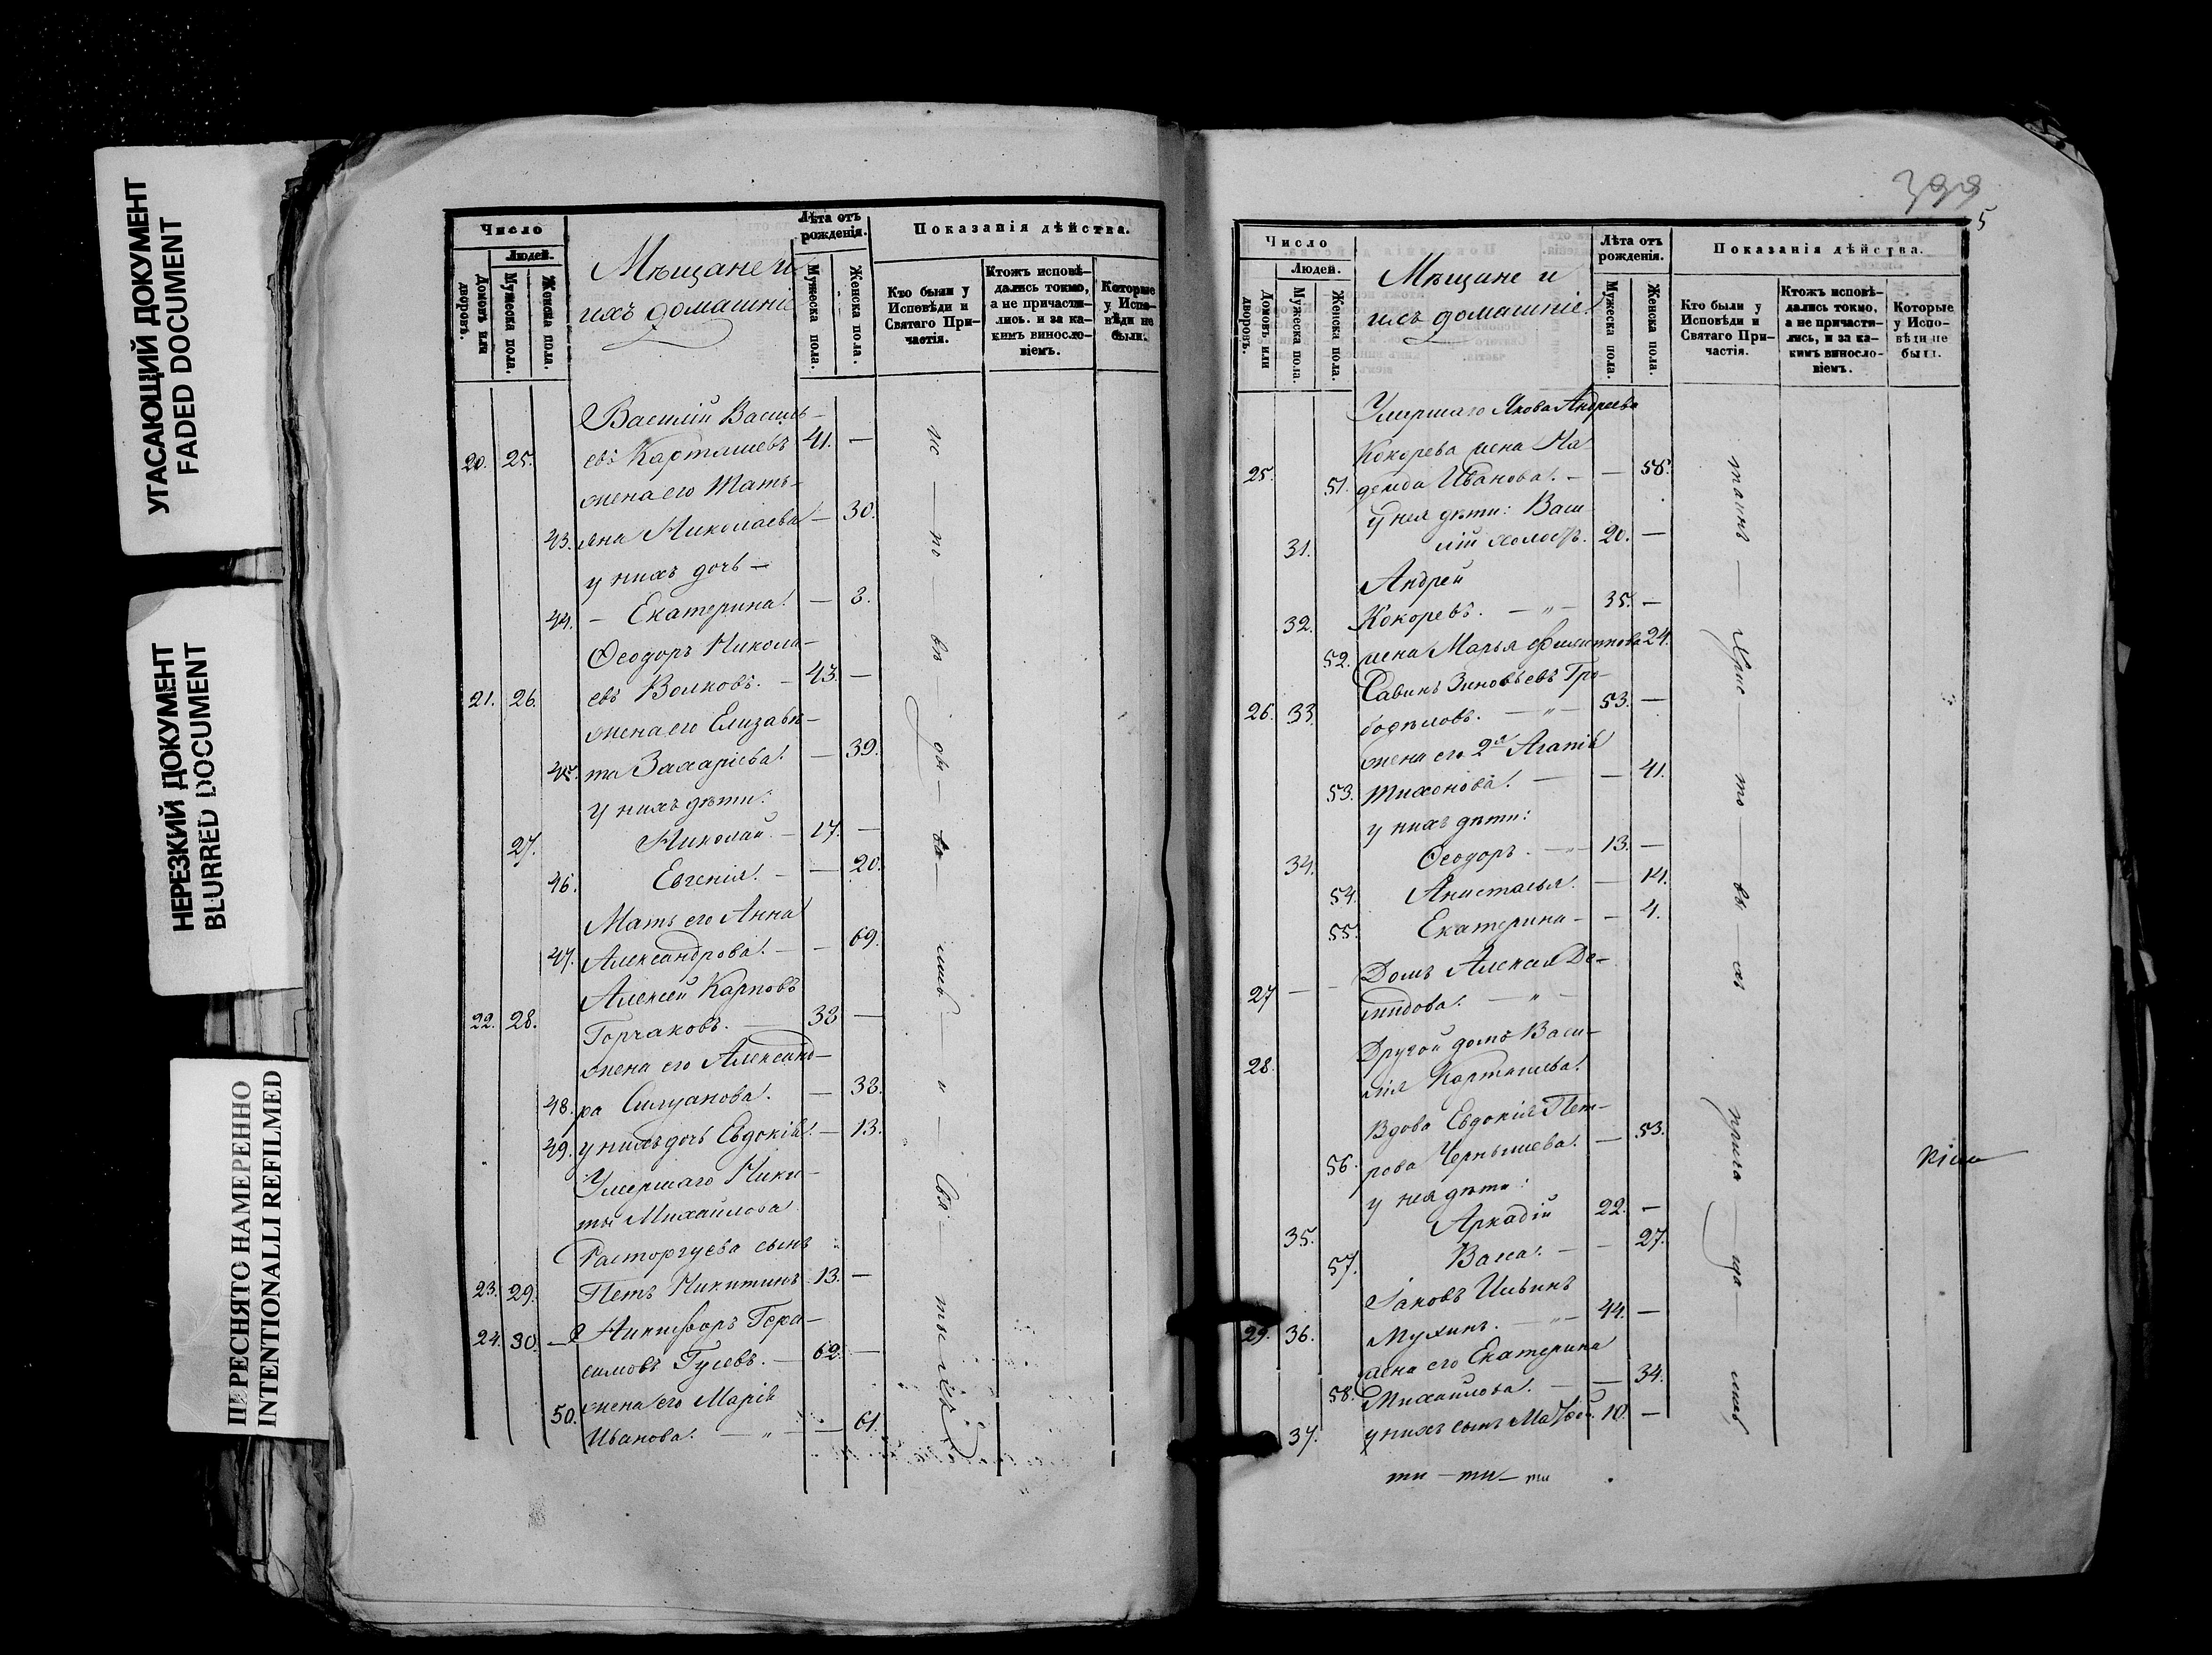 УГАСАЮЩИЙ ДОКУМЕНТ
FADED DOCUMENT
НЕРЕЗКИЙ ДОКУМЕНТ
BLURRED DOCUMENT
ПЕРЕСНЯТО НАМЕРЕННО
INTENTIONALLI REFILMED
Число
Людей.
Домовъ или дворовъ.
Мужеска пола.
Женска пола.
Мѣщане и
ихъ домашніе
Лѣта отъ рожденія.
Мужеска пола.
Женска пола.
Показанія дѣйства.
Кто были у Исповѣди и Святаго Причастія.
Ктожъ исповѣдались токмо, а не причастились. и за какимъ винословіемъ.
Которые у Исповѣди не были.
Василій Василь-
20. 25. евъ Карташевъ 41. —
жена его Тать-
43. яна Николаева — 30.
у нихъ дочь —
44. — Екатерина. — 8.
Ѳеодоръ Никола-
21. 26. евъ Волковъ. — 43. —
жена его Елизаве-
45. та Захаріева. — 39.
У нихъ дѣти:
27. Николай — 17. —
46. Евгенія. — — 20.
Мать его Анна
47. Александрова. — — 69.
Алексѣй Карповъ
22. 28. Горчаковъ. 38 —
жена его Александ-
48. ра Силуанова. — 38.
49. у нихъ дочь Евдокія. — 13.
Умершаго Ники-
ты Михайлова
Расторгуева сынъ
23. 29. Петръ Никитинъ 13. —
24. 30. — Никифоръ Гера-
симовъ Гусевъ. — 62. —
50. жена его Марія
Иванова. — „ — — 61.
399
5
Число
Людей.
Домовъ или дворовъ.
Мужеска пола.
Женска пола.
Мѣщане и
ихъ домашніе
Лѣта отъ рожденія.
Мужеска пола.
Женска пола.
Показанія дѣйства.
Кто были у Исповѣди и Святаго Причастія.
Ктожъ исповѣдались токмо, а не причастились, и за какимъ винословіемъ.
Которые у Исповѣди не были.
Умершаго Якова Андреева
Кокорева жена На-
25. 51. дежда Иванова. — — 58.
у нея дѣти: Васи-
31. лій холостъ. 20. —
Андрей
32. Кокоревъ. — „ — 35. —
52. жена Марья Филиппова 24.
Савинъ Зиновьевъ Гро-
26. 33. бодѣловъ. — „ — 53. —
жена его 2я Агапія
53. Тихонова. — — 41.
у нихъ дѣти:
34. Ѳеодоръ. — „ — 13. —
54. Анастасья. — 14.
55. Екатерина — — 4.
Домъ Алексея Де-
27 — — мидова. — „ —
Другой домъ Васи-
28. лія Карташева.
Вдова Евдокія Пет-
56. рова Чернышева. — 53.
у нея дѣти:
35. Аркадій 22. —
57. Васса. — — 27.
Іаковъ Ильинъ
29. 36. Мухинъ. — „ — 44. —
жена его Екатерина
58. Михайлова. — — 34.
37. у нихъ сынъ Матѳей 10. —
ти — ти — ти